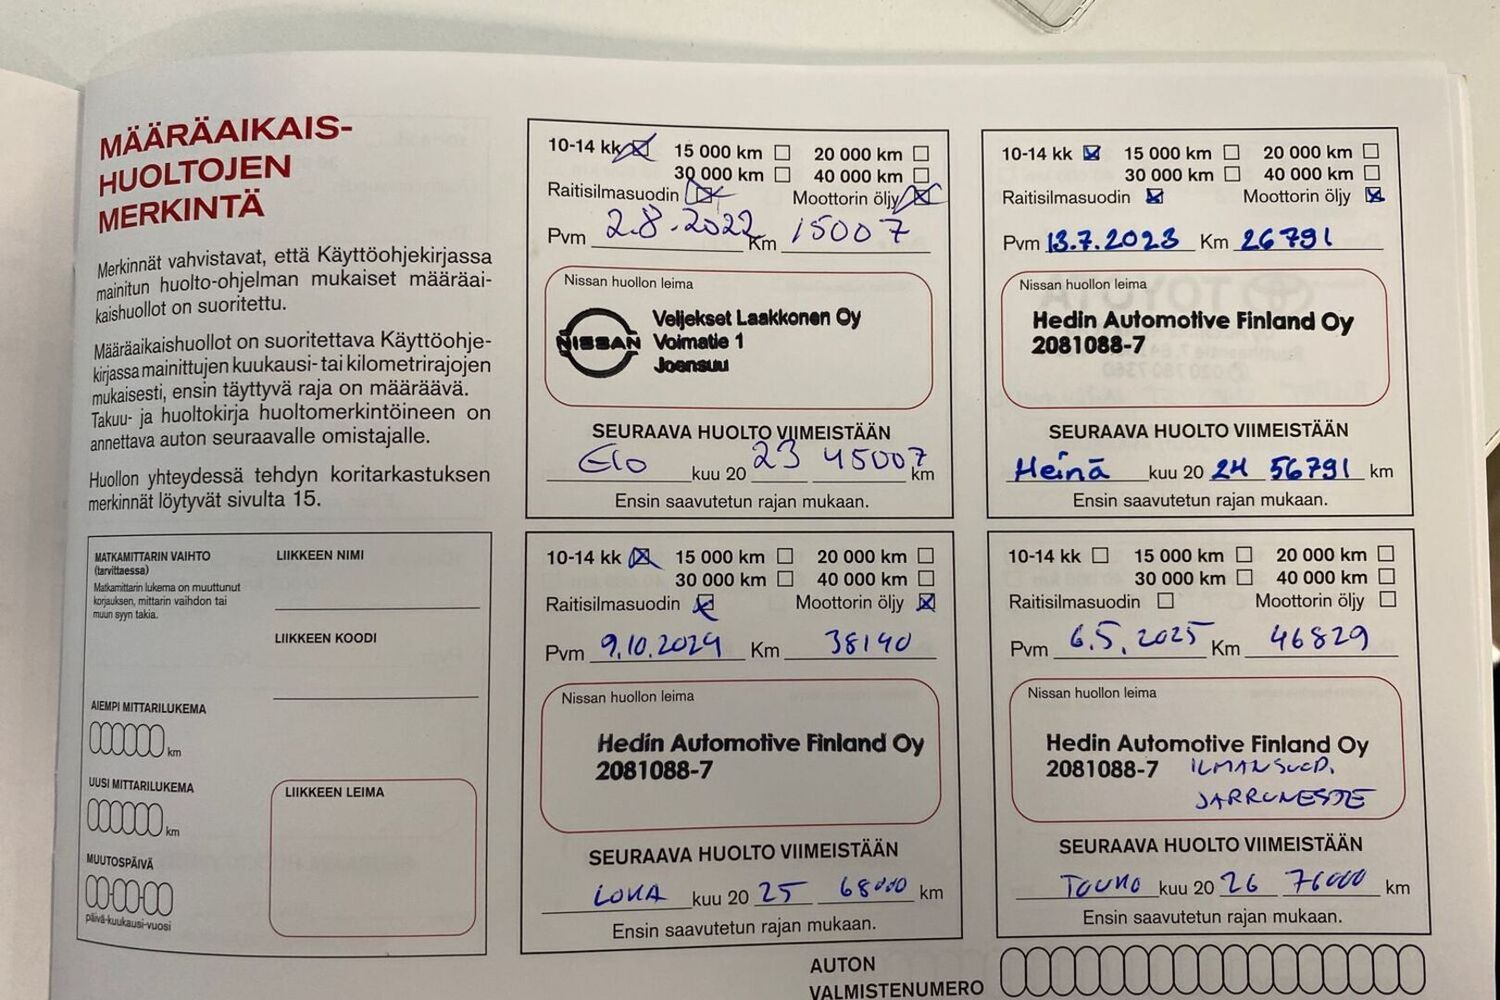 MÄÄRÄAIKAIS-
HUOLTOJEN
MERKINTÄ
Merkinnät vahvistavat, että Käyttöohjekirjassa
mainitun huolto-ohjelman mukaiset määräai-
kaishuollot on suoritettu.
Määräaikaishuollot on suoritettava Käyttöohje-
kirjassa mainittujen kuukausi- tai kilometrirajojen
mukaisesti, ensin täyttyvä raja on määräävä.
Takuu- ja huoltokirja huoltomerkintöineen on
annettava auton seuraavalle omistajalle.
Huollon yhteydessä tehdyn koritarkastuksen
merkinnät löytyvät sivulta 15.
MATKAMITTARIN VAIHTO
(tarvittaessa)
Matkamittarin lukema on muuttunut
korjauksen, mittarin vaihdon tai
muun syyn takia.
LIIKKEEN NIMI
LIIKKEEN KOODI
AIEMPI MITTARILUKEMA
km
UUSI MITTARILUKEMA
km
MUUTOSPÄIVÄ
päivä-kuukausi-vuosi
LIIKKEEN LEIMA
10-14 kk 15 000 km 20 000 km
30 000 km 40 000 km
Raitisilmasuodin Moottorin öljy
Pvm 2.8.2022 Km 15007
Nissan huollon leima
NISSAN
Veljekset Laakkonen Oy
Voimatie 1
Joensuu
SEURAAVA HUOLTO VIIMEISTÄÄN
Elo kuu 20 23 45007 km
Ensin saavutetun rajan mukaan.
10-14 kk 15 000 km 20 000 km
30 000 km 40 000 km
Raitisilmasuodin Moottorin öljy
Pvm 13.7.2023 Km 26791
Nissan huollon leima
Hedin Automotive Finland Oy
2081088-7
SEURAAVA HUOLTO VIIMEISTÄÄN
Heinä kuu 20 24 56791 km
Ensin saavutetun rajan mukaan.
10-14 kk 15 000 km 20 000 km
30 000 km 40 000 km
Raitisilmasuodin Moottorin öljy
Pvm 9.10.2024 Km 38140
Nissan huollon leima
Hedin Automotive Finland Oy
2081088-7
SEURAAVA HUOLTO VIIMEISTÄÄN
LOKA kuu 20 25 68000 km
Ensin saavutetun rajan mukaan.
10-14 kk 15 000 km 20 000 km
30 000 km 40 000 km
Raitisilmasuodin Moottorin öljy
Pvm 6.5.2025 Km 46829
Nissan huollon leima
Hedin Automotive Finland Oy
2081088-7 ILMANSUOD.
JARRUNESTE
SEURAAVA HUOLTO VIIMEISTÄÄN
TOUKO kuu 20 26 76000 km
Ensin saavutetun rajan mukaan.
AUTON
VALMISTENUMERO